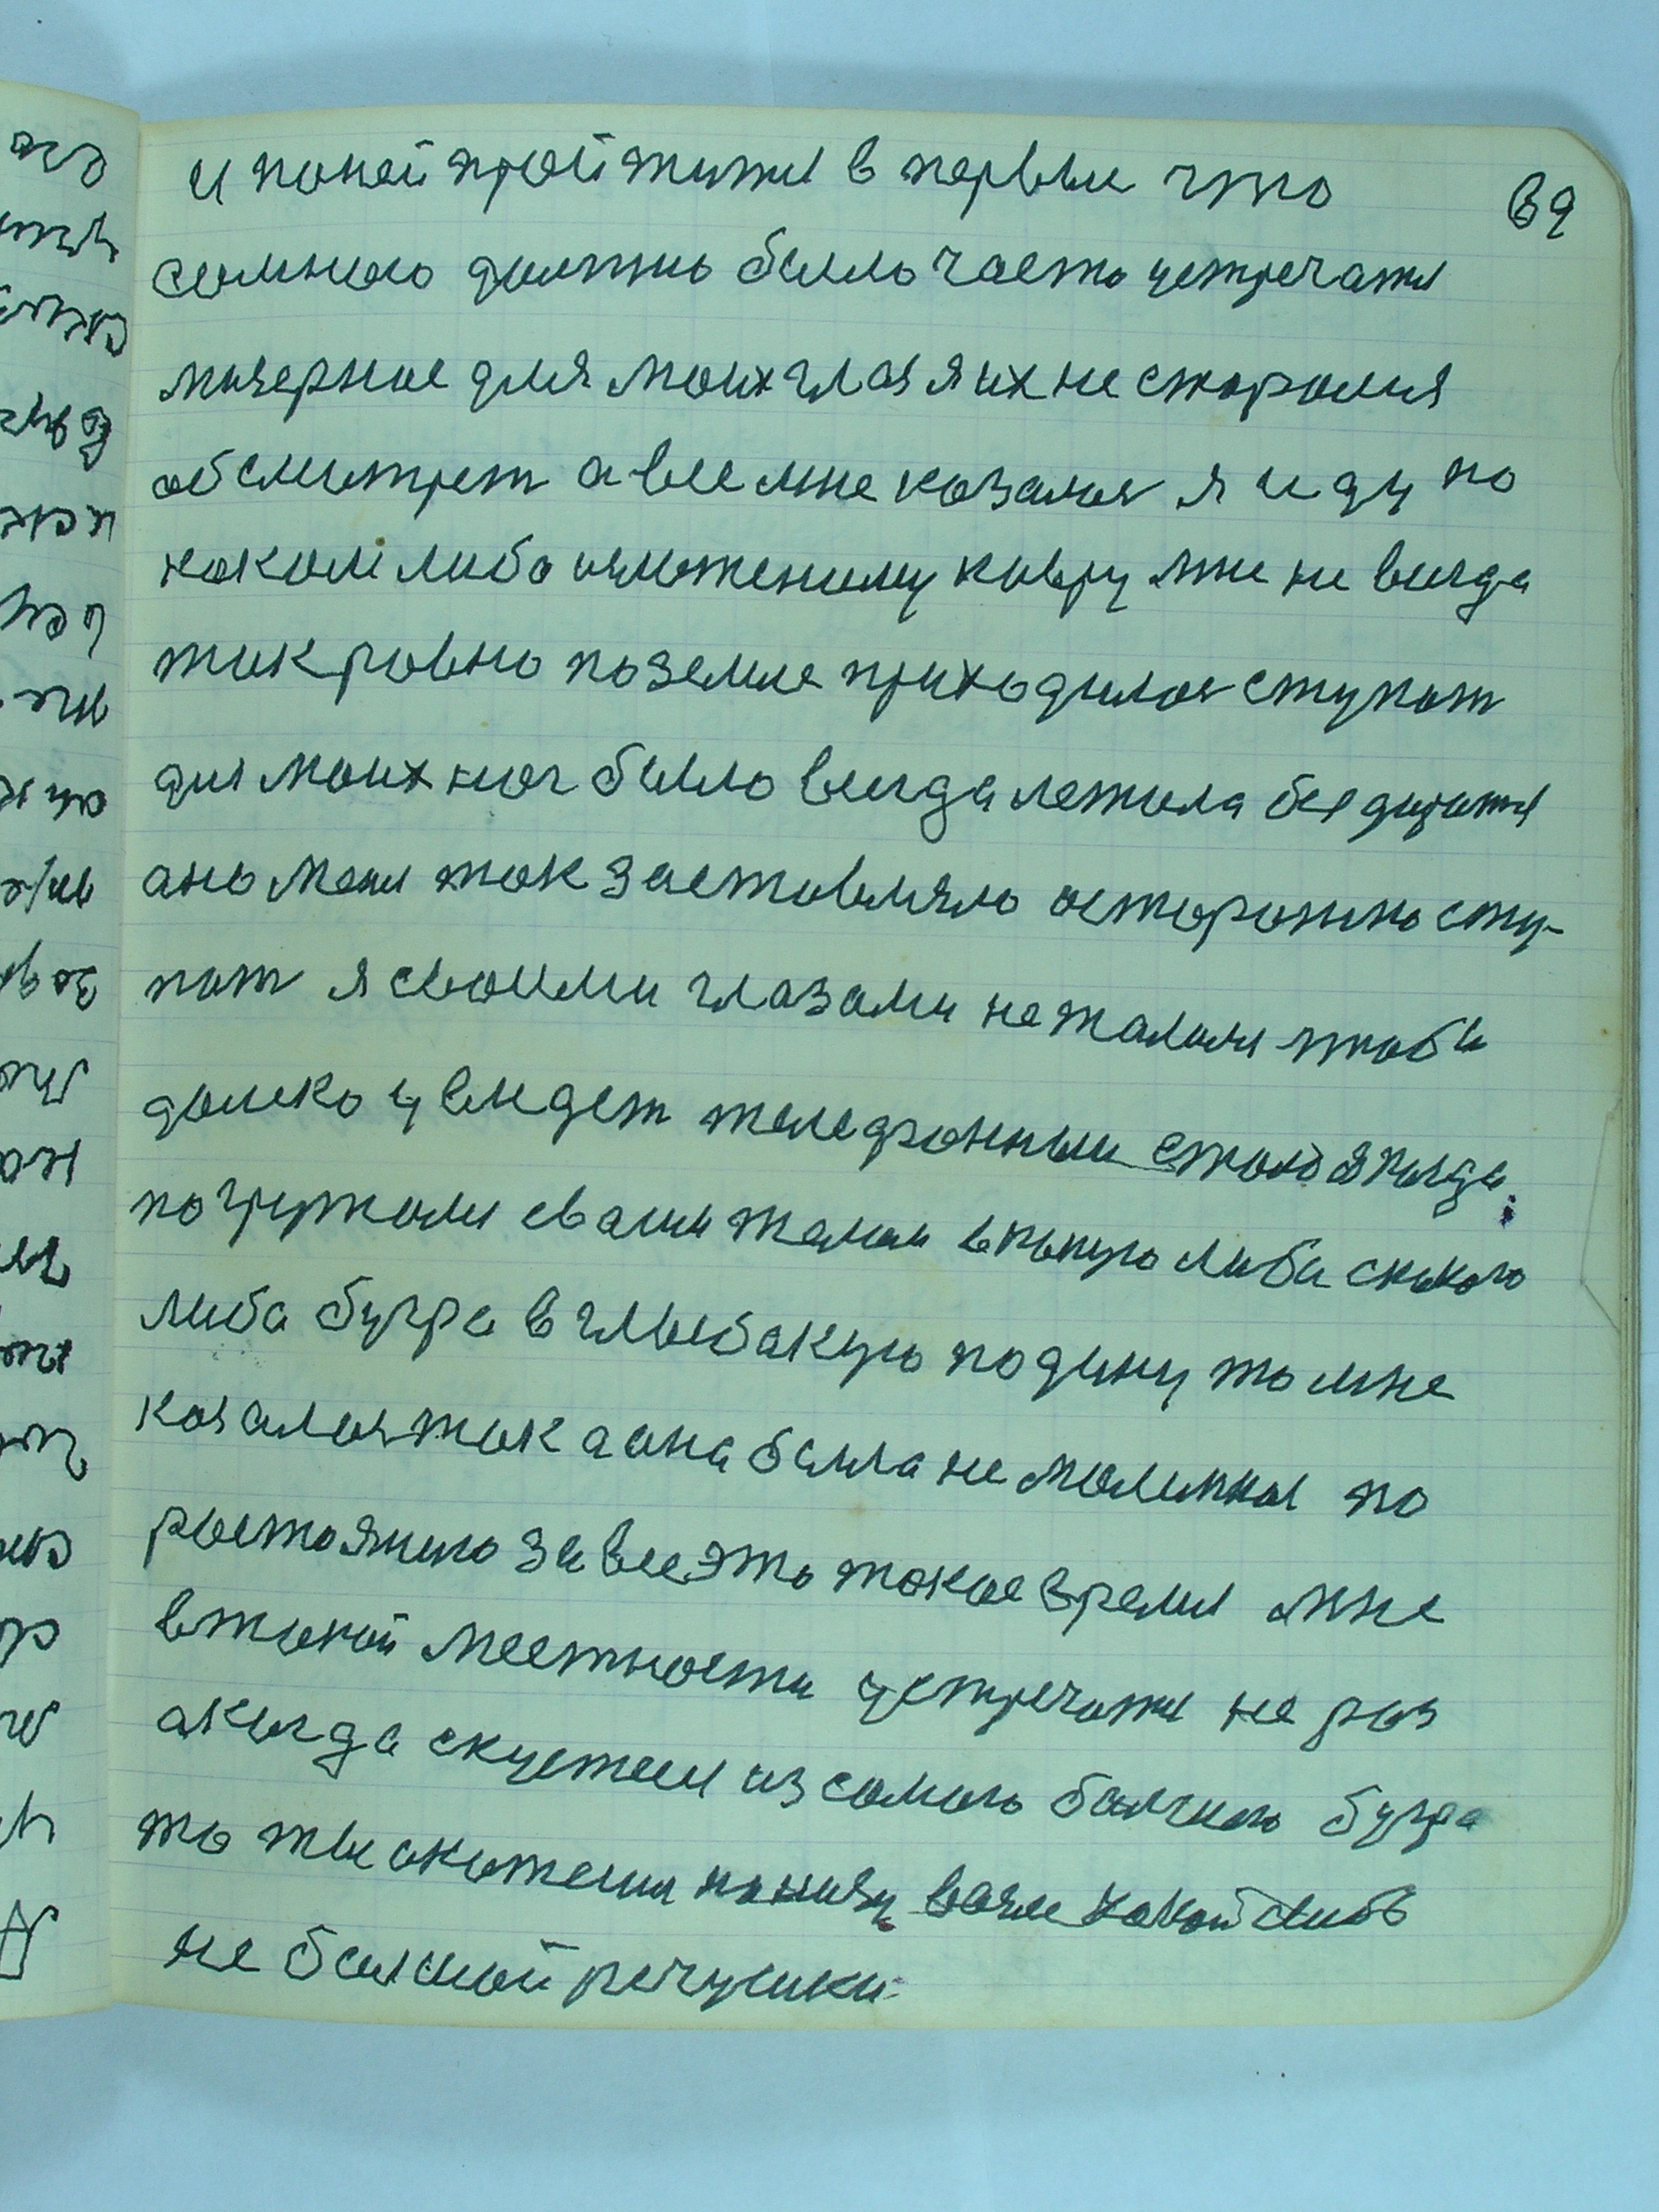 и поней пройтится в первые что
69
самного должно было часто устречатся
мизерное для моих глаз я их не старался
обсмотрет а все мне казалос я иду по
каком либо изложеному ковру мне не всигда
так ровно по земле приходилос ступат
для моих ног было всигда лежала без дарожья
ано меня так заставляло осторожно сту-
пат я своими глазами не жалался чтобы
далеко увыидет телефонныи столб я когда
погружался сваим телом в какую либа скакого
либа бугра в глыбакую лодину то мне
казалос так а она была не малинкая по
растоянию за все это такое время мне
в такой местности устречатся не раз
а когда скустися из самого балшого бугра
то ты окажешся понизу возле какой либо
не балшой речушки